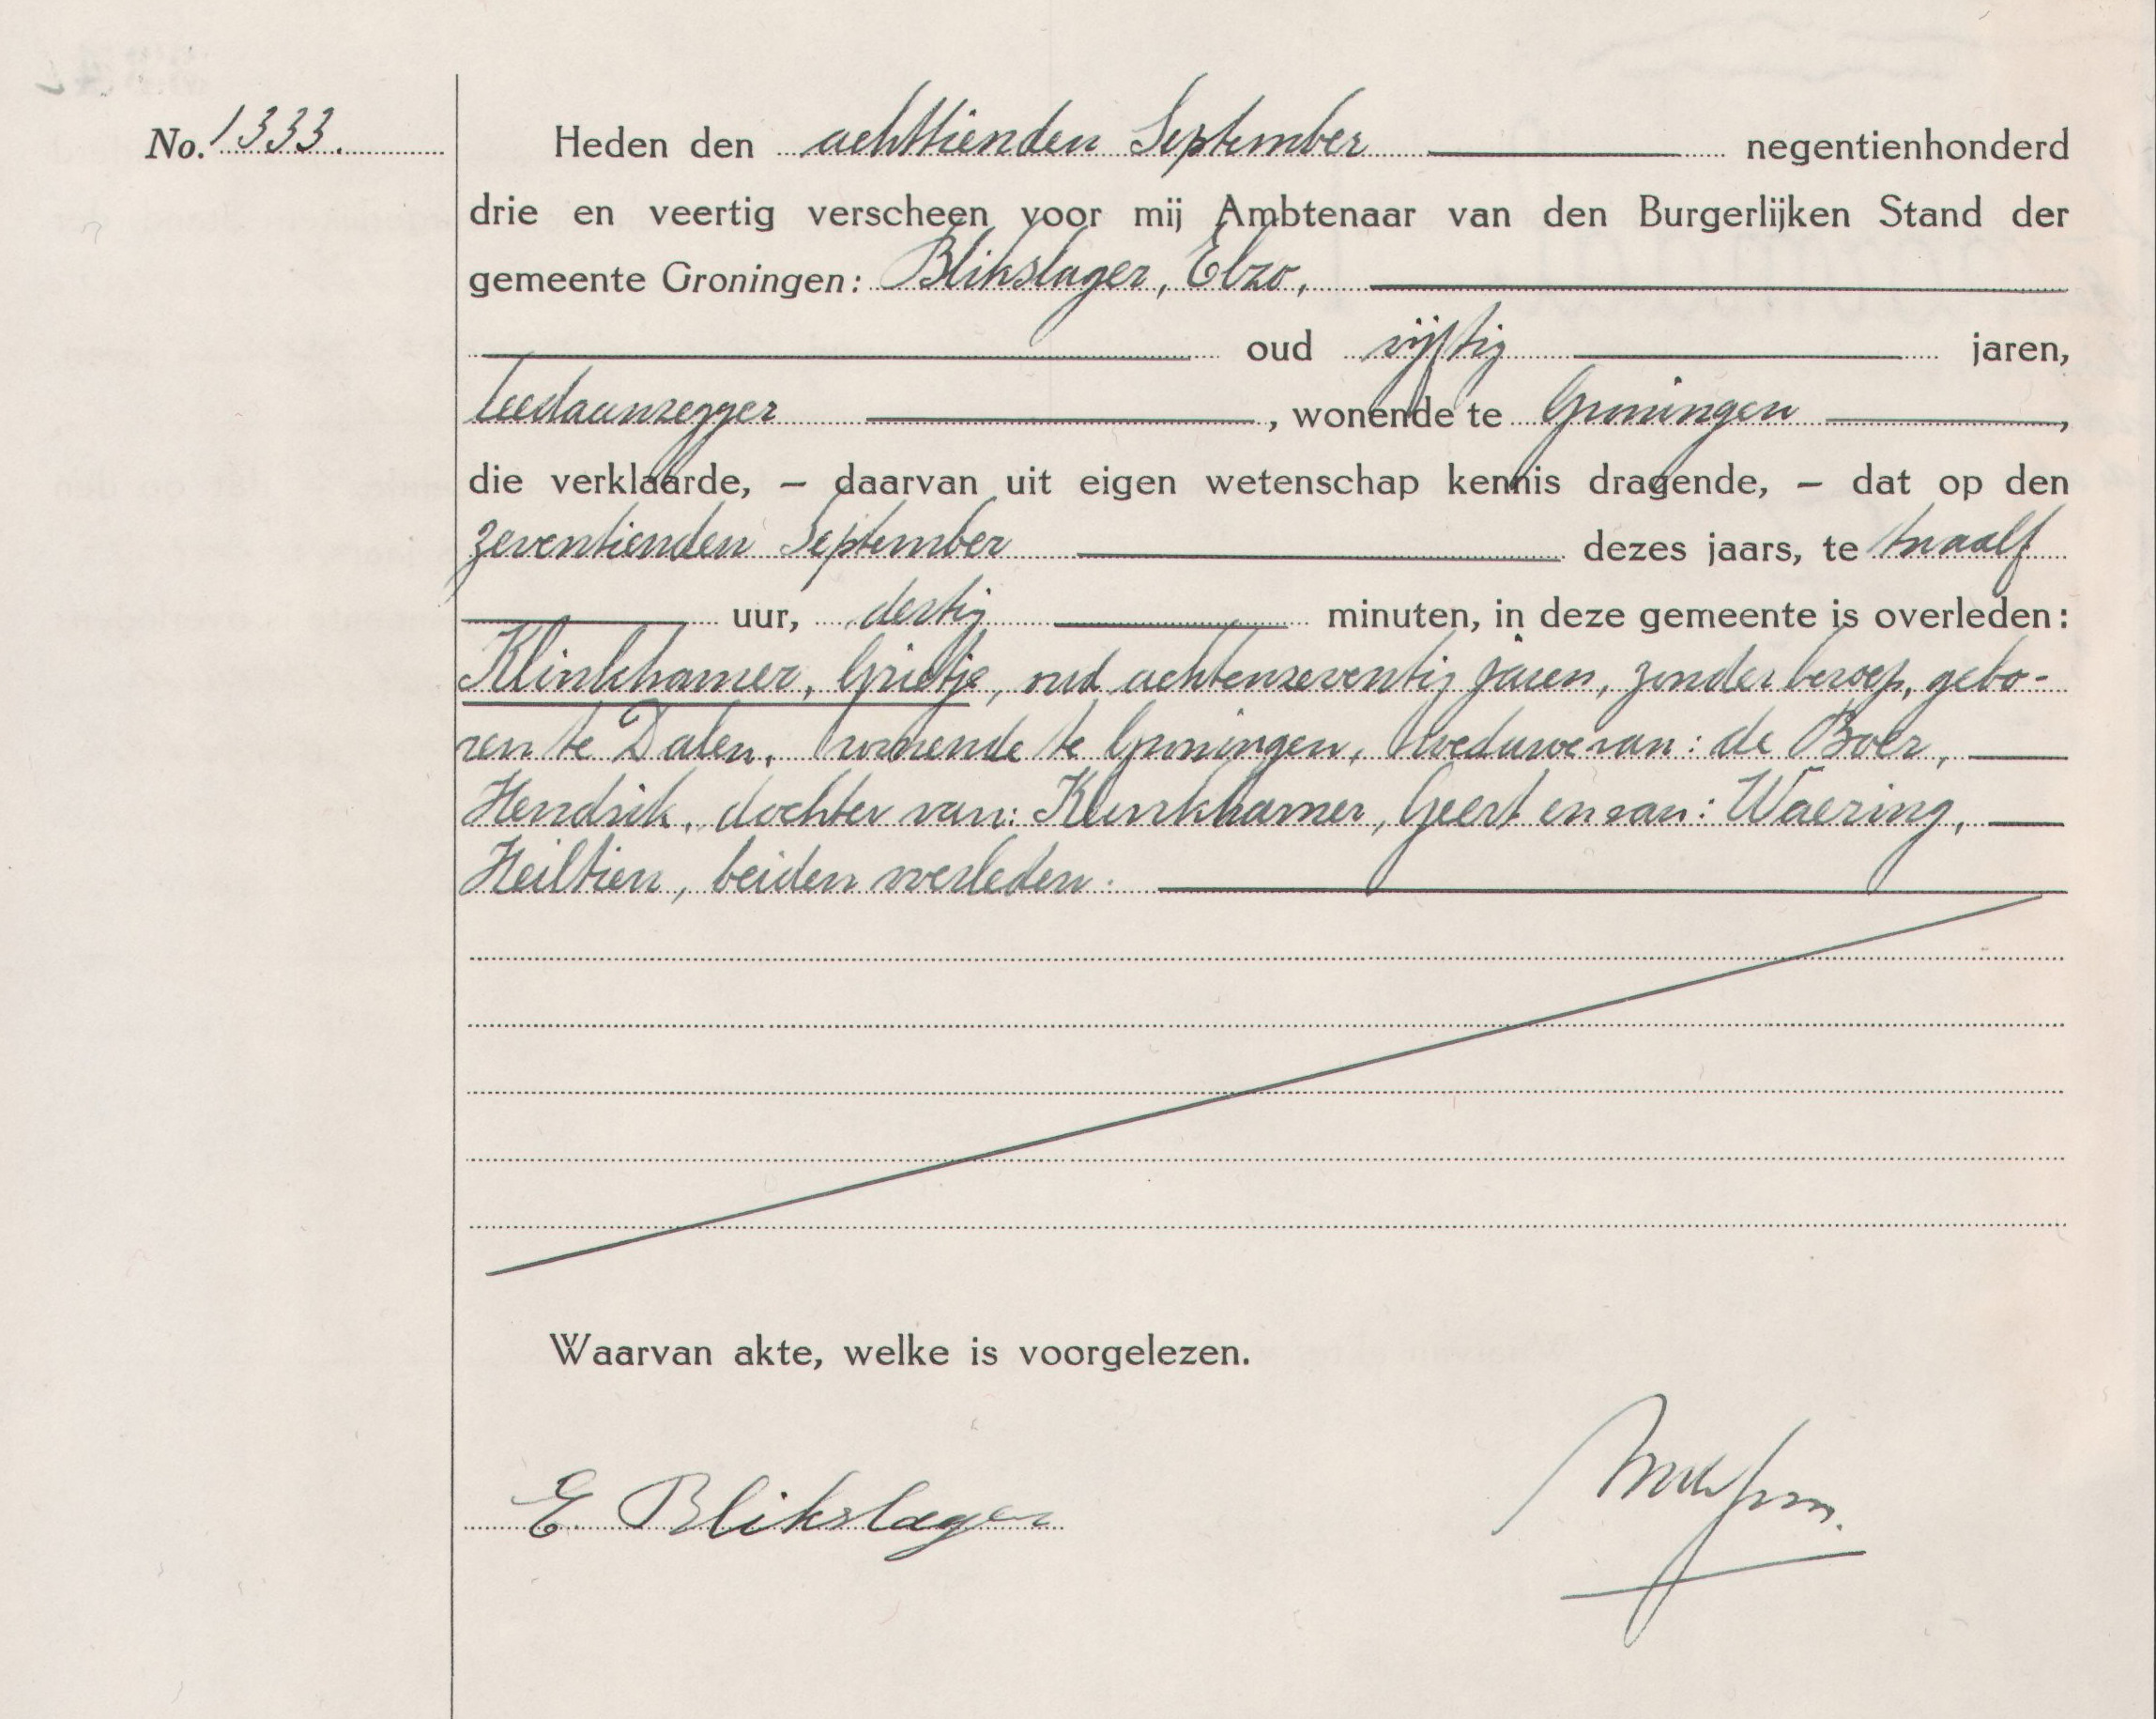 No. 1333.
Heden den achttienden September negentienhonderd
drie en veertig verscheen voor mij Ambtenaar van den Burgerlijken Stand der
gemeente Groningen: Blikslager, Elzo,
oud vijftig jaren,
leedaanzegger, wonende te Groningen,
die verklaarde, – daarvan uit eigen wetenschap kennis dragende, – dat op den
zeventienden September dezes jaars, te twaalf
uur, dertig minuten, in deze gemeente is overleden:
Klinkhamer, Grietje, oud achtenzeventig jaren, zonder beroep, gebo-
ren te Dalen, wonende te Groningen, weduwe van: de Boer,
Hendrik, dochter van: Klinkhamer, Geert en van: Waering,
Heiltien, beiden overleden.
Waarvan akte, welke is voorgelezen.
E. Blikslager